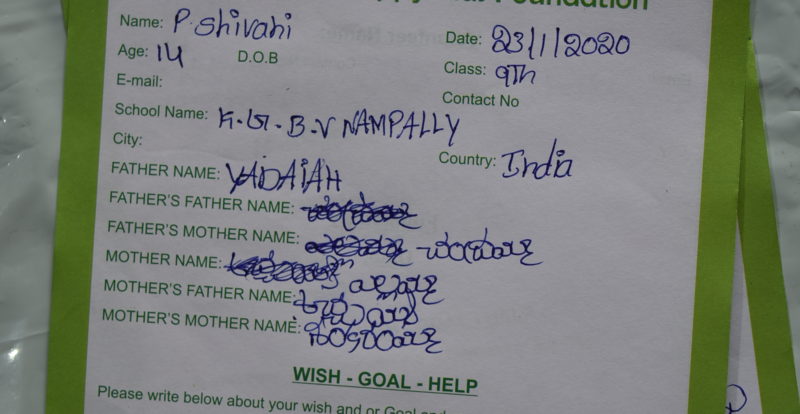 Foundation
Name: P. Shivani
Date: 23/1/2020
Age: 14 D.O.B
Class: 9Th
E-mail:
Contact No
School Name: K.G.B.V NAMPALLY
City:
Country: India
FATHER NAME: YADAIAH
FATHER'S FATHER NAME:
FATHER'S MOTHER NAME:
MOTHER NAME:
MOTHER'S FATHER NAME:
MOTHER'S MOTHER NAME:
WISH - GOAL - HELP
Please write below about your wish and or Goal and